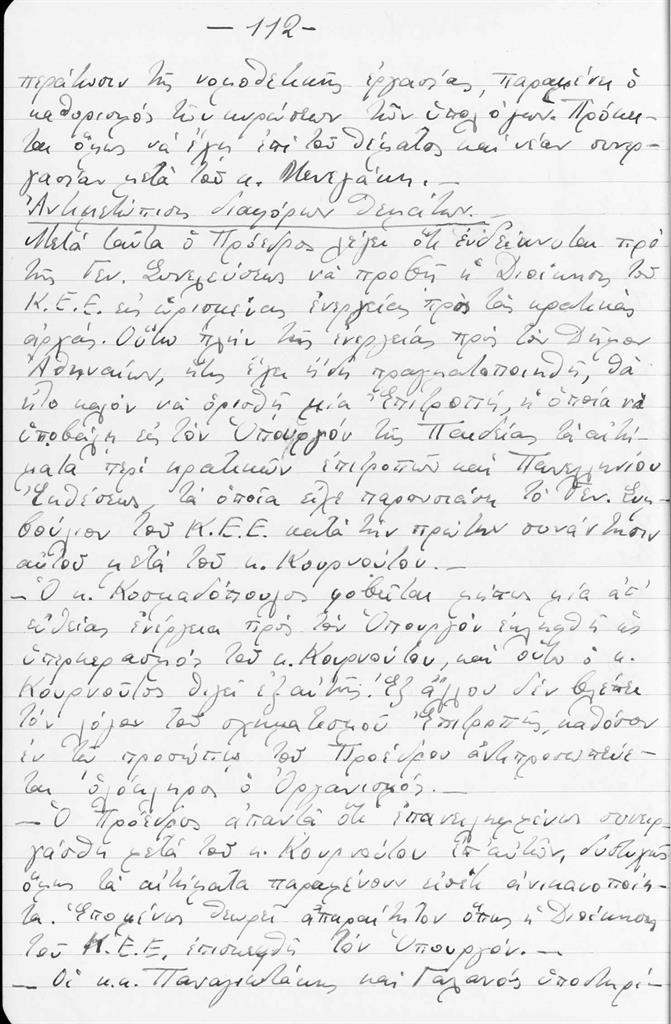 - 112 -
περάτωσιν τῆς νομοθετικῆς ἐργασίας, παραμένει ὁ
καθορισμός τῶν κυρώσεων τῶν ὑπολόγων. Πρόκει-
ται ὅμως νά ἔχῃ ἐπί τοῦ θέματος καί νέαν συνερ-
γασίαν μετά τοῦ κ. Μενεγάκη. —
Ἀντιμετώπισις διαφόρων θεμάτων. —
Μετά ταῦτα ὁ Πρόεδρος λέγει ὅτι ἐνδείκνυται πρό
τῆς Γεν. Συνελεύσεως νά προβῇ ἡ Διοίκησις τοῦ
Κ.Ε.Ε. εἰς ὡρισμένας ἐνεργείας πρός τάς κρατικάς
ἀρχάς. Οὕτω πλήν τῆς ἐνεργείας πρός τόν Δῆμον
Ἀθηναίων, ἥτις ἔχει ἤδη πραγματοποιηθῆ, θά
ἦτο καλόν νά ὁρισθῇ μία Ἐπιτροπή, ἡ ὁποία νά
ὑποβάλῃ εἰς τόν Ὑπουργόν τῆς Παιδείας τά αἰτή-
ματα περί κρατικῶν ἐπιτροπῶν καί Πανελληνίου
Ἐκθέσεως, τά ὁποῖα εἶχε παρουσιάσῃ τό Γεν. Συμ-
βούλιον τοῦ Κ.Ε.Ε. κατά τήν πρώτην συνάντησιν
αὐτοῦ μετά τοῦ κ. Κουρνούτου. —
— Ὁ κ. Κοσμαδόπουλος φοβεῖται μήπως μία ἀπ'
εὐθείας ἐνέργεια πρός τόν Ὑπουργόν ἐκληφθῇ ὡς
ὑπερκερασμός τοῦ κ. Κουρνούτου, καί οὕτω ὁ κ.
Κουρνοῦτος θιγεῖ ἐξ αὐτῆς. Ἐξ ἄλλου δέν βλέπει
τόν λόγον τοῦ σχηματισμοῦ Ἐπιτροπῆς, καθόσον
ἐν τῷ προσώπῳ τοῦ Προέδρου ἀντιπροσωπεύε-
ται ὁλόκληρος ὁ Ὀργανισμός. —
— Ὁ Πρόεδρος ἀπαντᾶ ὅτι ἐπανειλημμένως συνειρ-
γάσθη μετά τοῦ κ. Κουρνούτου ἐπ' αὐτῶν, δυστυχῶς
ὅμως τά αἰτήματα παραμένουν εἰσέτι ἀνικανοποίη-
τα. Ἑπομένως θεωρεῖ ἀπαραίτητον ὅπως ἡ Διοίκησις
τοῦ Κ.Ε.Ε. ἐπισκεφθῇ τόν Ὑπουργόν. —
— Οἱ κ.κ. Παναγιωτάκης καί Γαλανός ὑποστηρί-